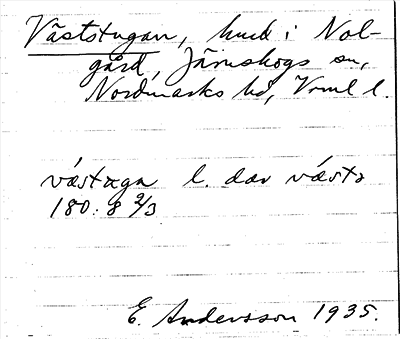 Väststugan, hmd i Nol-
gård, Järnskogs sn,
Nordmarks hd, Vrml l.
västuga l. dav västa
180: 8 2/3
E. Andersson 1935.